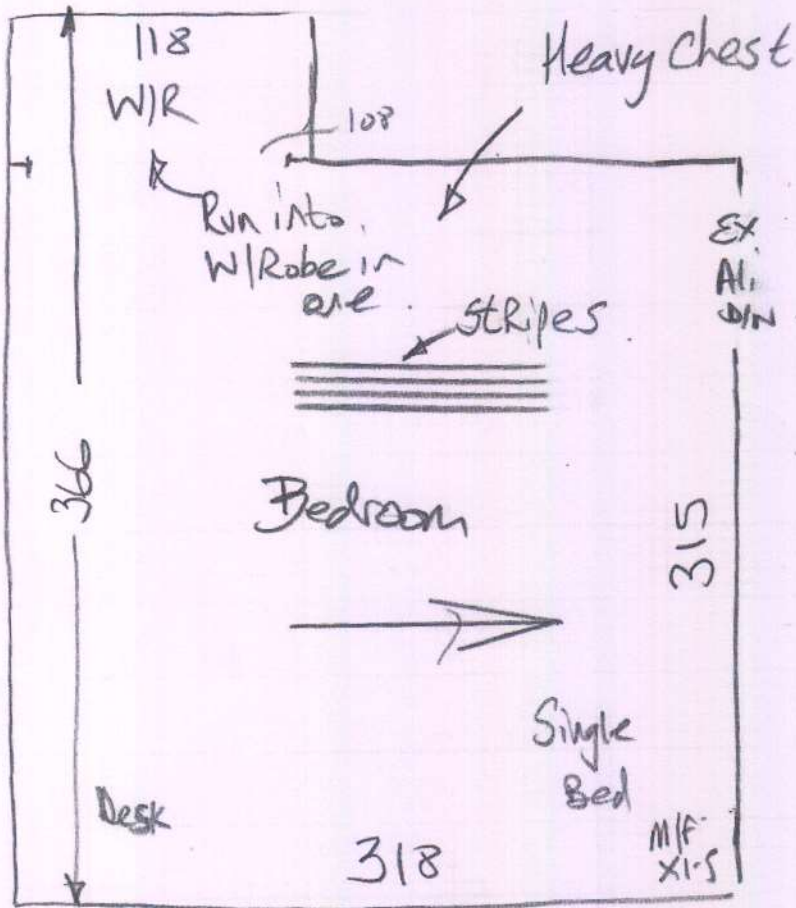 118
W/R
Heavy Chest
108
Run into
W/Robe in
one
EX.
Al.
D/N
Stripes
366
Bedroom
315
Single
Bed
Desk
318
M/F
X1.5